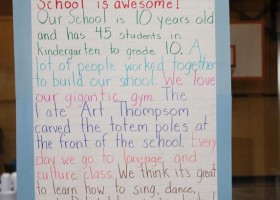 School is awesome!
Our School is 10 years old
and has 45 students in
kindergarten to grade 10. A
lot of people worked together
to build our shool. We love
our gigantic gym. The
late Art Thompsom
carved the totem poles at
the front of the school. Every
day we go to language and
culture class. We think it's great
to learn how to sing, dance,